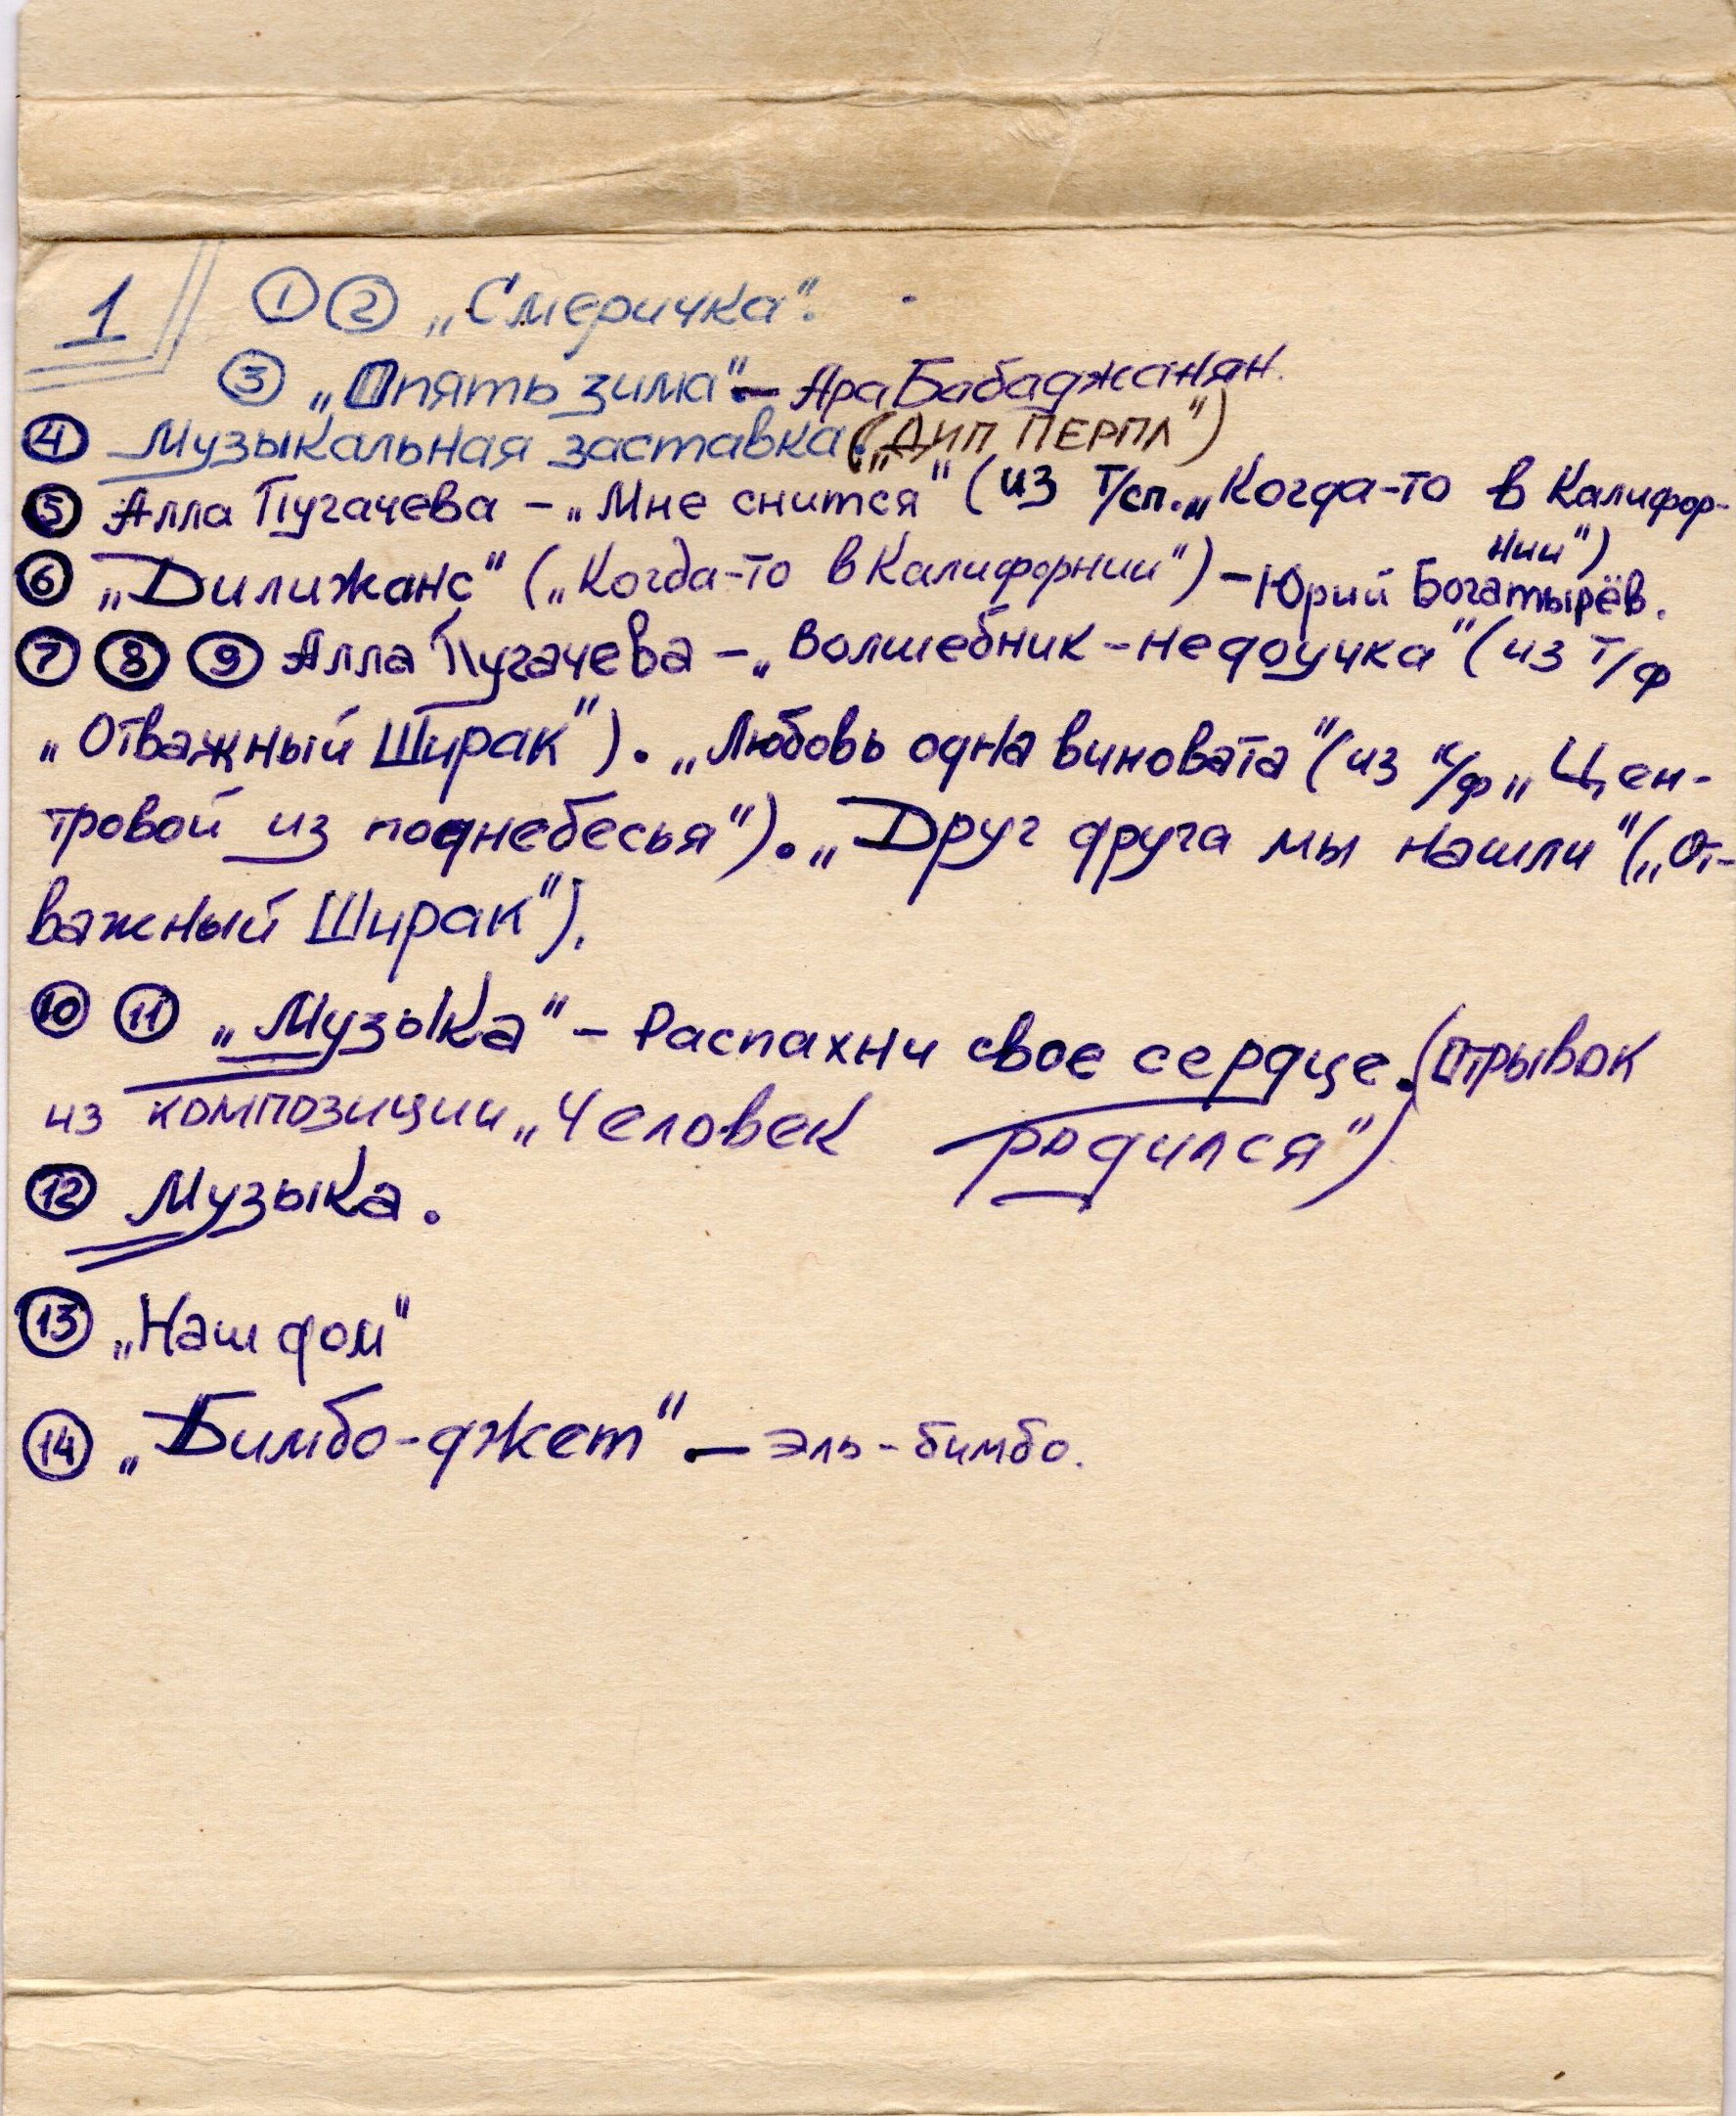 1 ① ② „Смеричка“.
③ „Опять зима“ – Ара Бабаджанян.
④ Музыкальная заставка („ДИП ПЕРПЛ“)
⑤ Алла Пугачева – „Мне снится“ (из т/сп. „Когда-то в Калифор-
нии“)
⑥ „Дилижанс“ („Когда-то в Калифорнии“) – Юрий Богатырёв.
⑦ ⑧ ⑨ Алла Пугачева – „Волшебник-недоучка“ (из т/ф
„Отважный Ширак“). „Любовь одна виновата“ (из к/ф „Цен-
тровой из поднебесья“). „Друг друга мы нашли“ („От-
важный Ширак“).
⑩ ⑪ „Музыка“ – Распахни свое сердце. (отрывок
из композиции „Человек родился“)
⑫ Музыка.
⑬ „Наш дом“
⑭ „Бимбо-джет“ – эль-бимбо.